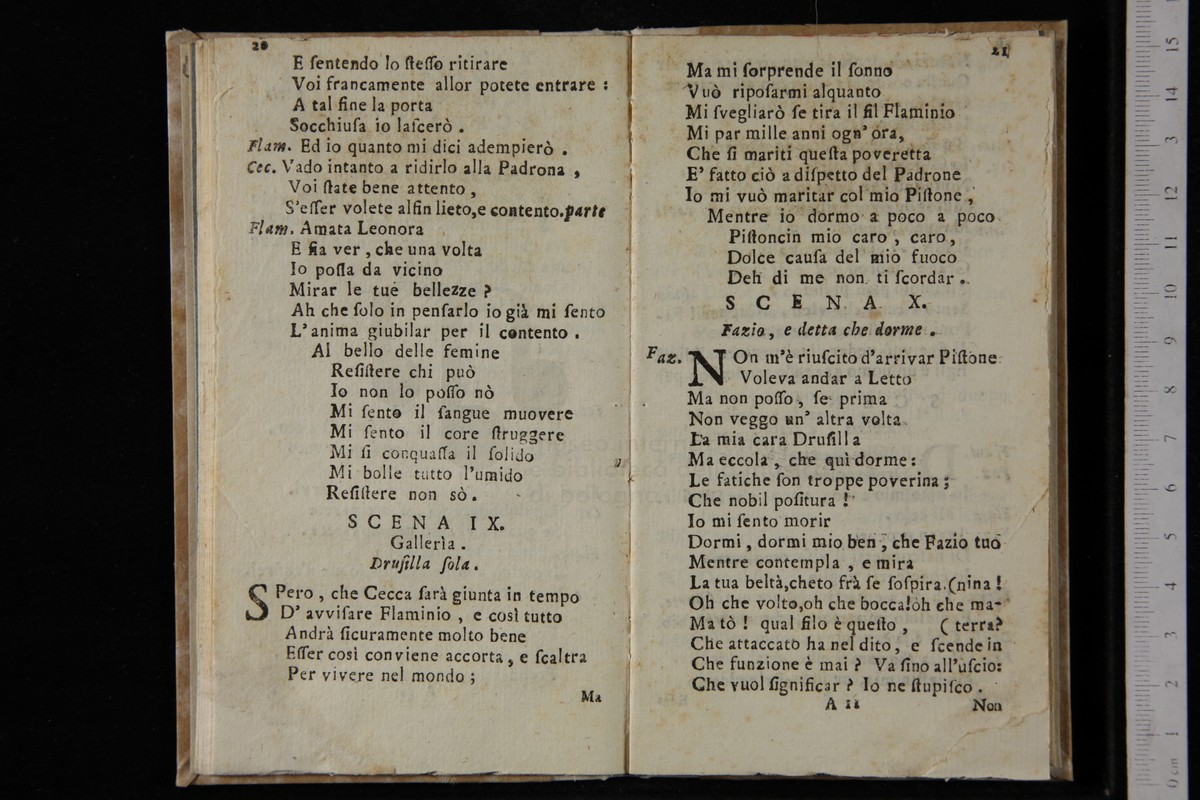 20
E ſentendo lo ſteſſo ritirare
Voi francamente allor potete entrare :
A tal fine la porta
Socchiuſa io laſcerò .
Flam. Ed io quanto mi dici adempierò .
Cec. Vado intanto a ridirlo alla Padrona ,
Voi ſtate bene attento ,
S'eſſer volete alfin lieto,e contento.parte
Flam. Amata Leonora
E ſia ver , che una volta
Io poſſa da vicino
Mirar le tue bellezze ?
Ah che ſolo in penſarlo io già mi ſento
L'anima giubilar per il contento .
Al bello delle femine
Reſiſtere chi può
Io non lo poſſo nò
Mi ſento il ſangue muovere
Mi ſento il core ſtruggere
Mi ſi conquaſſa il ſolido
Mi bolle tutto l'umido
Reſiſtere non sò .
SCENA IX.
Gallerìa .
Druſilla ſola .
SPero , che Cecca ſarà giunta in tempo
D' avviſare Flaminio , e così tutto
Andrà ſicuramente molto bene
Eſſer così conviene accorta , e ſcaltra
Per vivere nel mondo ;
Ma
21
Ma mi ſorprende il ſonno
Vuò ripoſarmi alquanto
Mi ſvegliarò ſe tira il fil Flaminio
Mi par mille anni ogn' ora,
Che ſi mariti queſta poveretta
E' fatto ciò a diſpetto del Padrone
Io mi vuò maritar col mio Piſtone ,
Mentre io dormo a poco a poco
Piſtoncin mio caro , caro,
Dolce cauſa del mio fuoco
Deh di me non ti ſcordar .
SCENA X.
Fazio, e detta che dorme .
Faz. NOn m'è riuſcito d'arrivar Piſtone
Voleva andar a Letto
Ma non poſſo , ſe prima
Non veggo un' altra volta
La mia cara Druſilla
Ma eccola , che quì dorme :
Le fatiche ſon troppe poverina ;
Che nobil poſitura !
Io mi ſento morir
Dormi , dormi mio ben , che Fazio tuo
Mentre contempla , e mira
La tua beltà,cheto frà ſe ſoſpira.(nina !
Oh che volto,oh che bocca!oh che ma-
Ma tò ! qual filo è queſto , ( terra?
Che attaccato ha nel dito , e ſcende in
Che funzione è mai ? Va ſino all'uſcio:
Che vuol ſignificar ? Io ne ſtupiſco .
A 11 Non